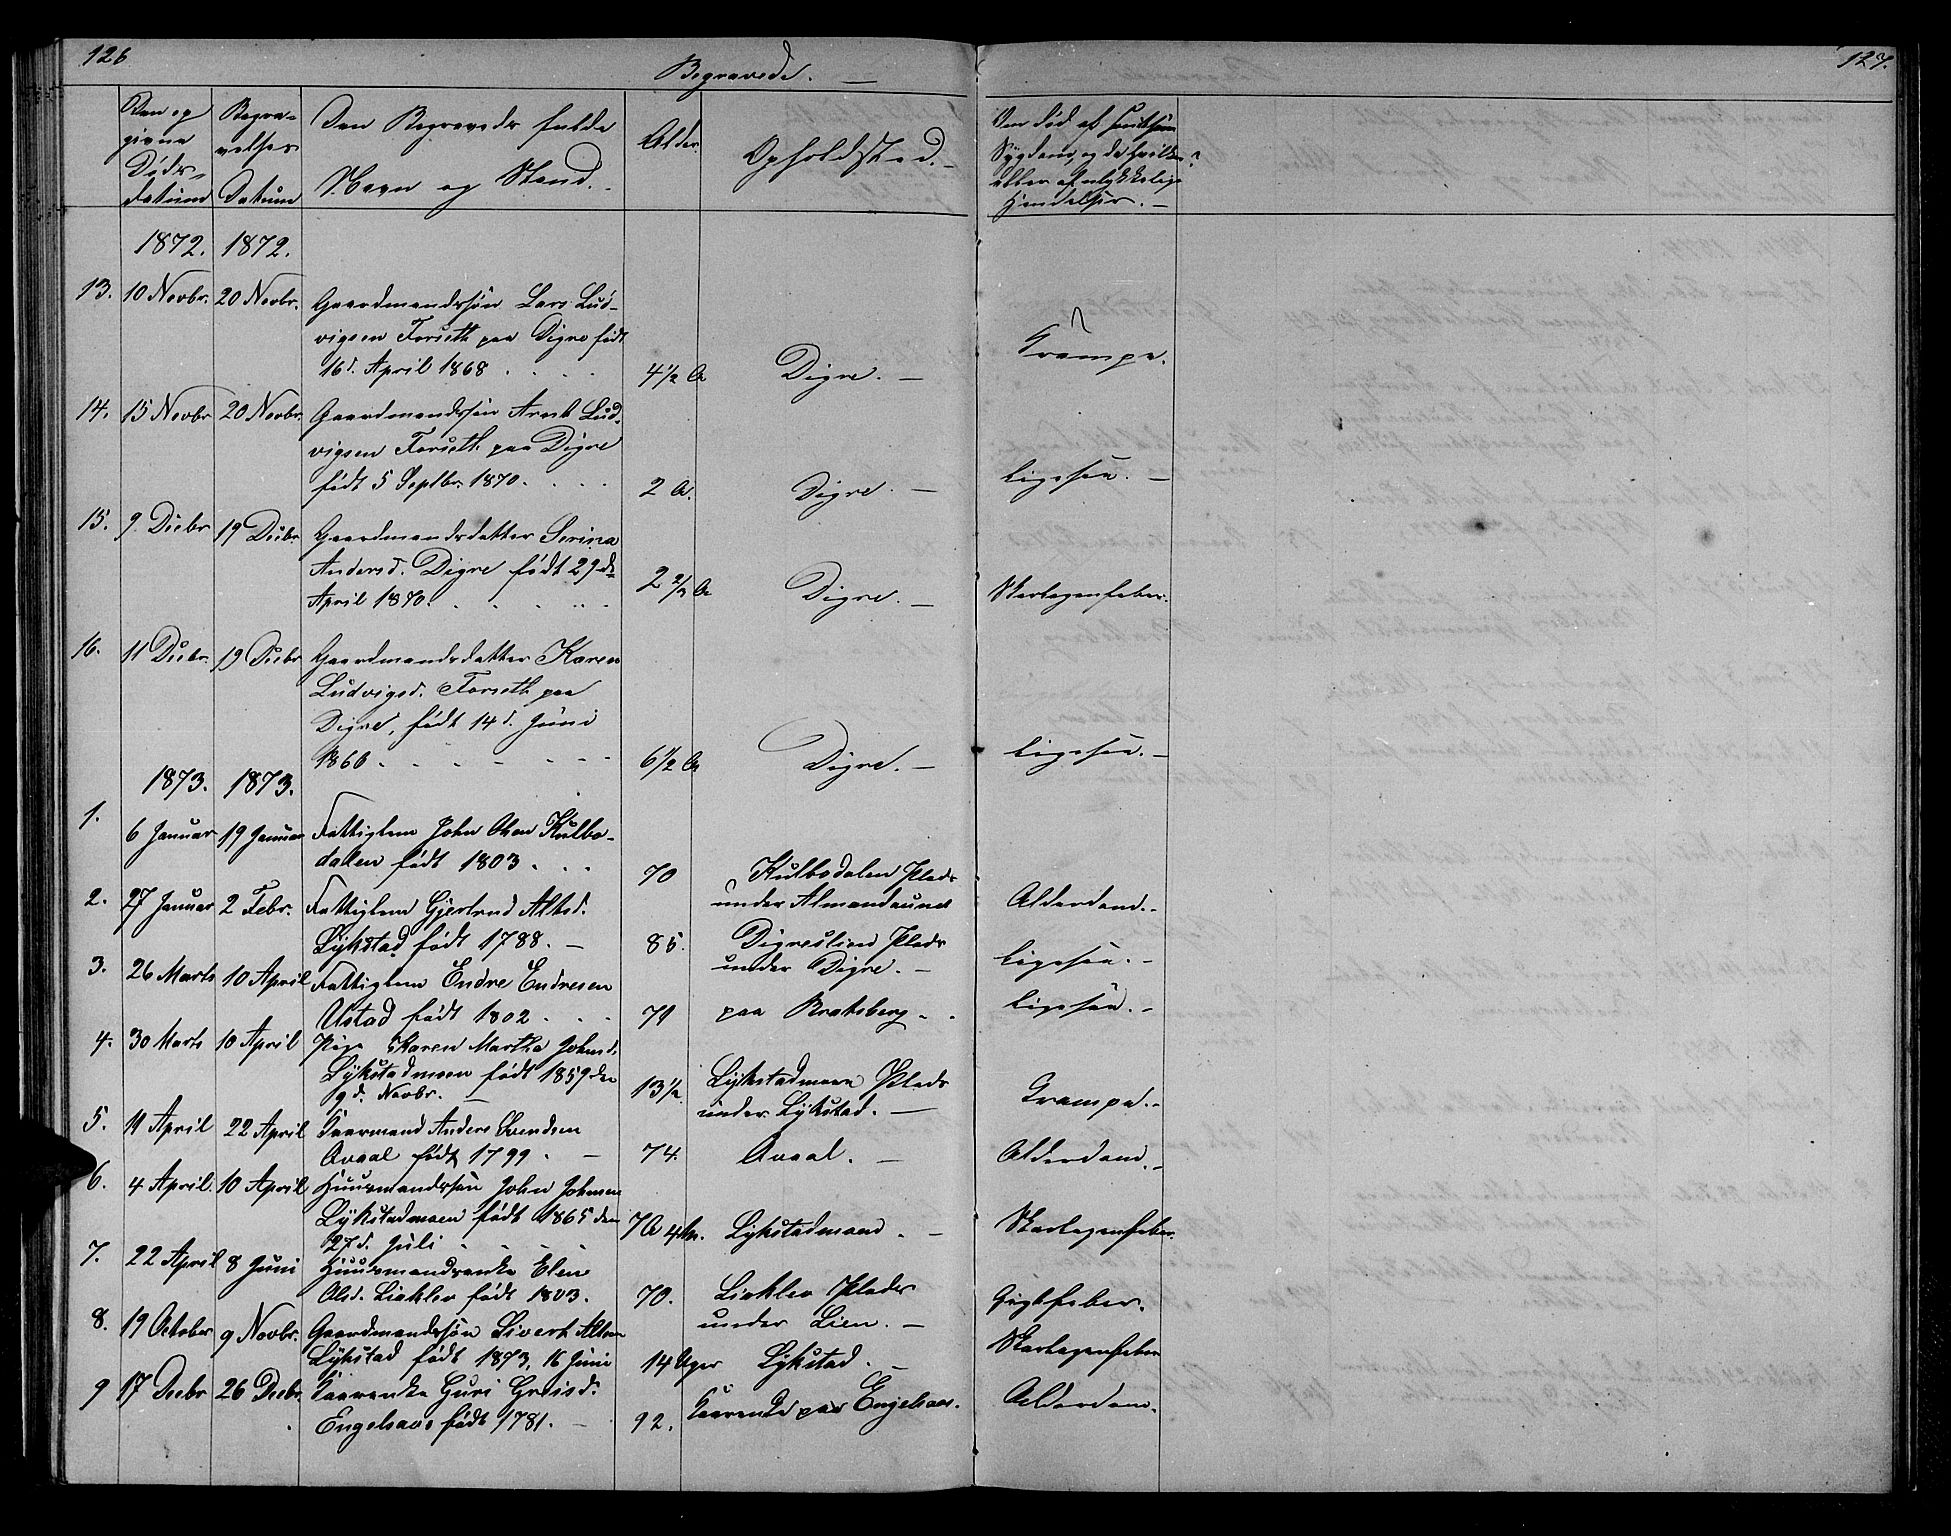 126
Begravede. —
127.
Den og
givne
Døds-
datum
Begra-
velses
Datum
Den Begravedes fulde
Navn og Stand. -
Alder.
Opholdsted. -
Om død af
Sygdom, og da hvilken?
eller af ulykkelige
Hendelser. -
1872. 1872.
13. 10 Novbr. 20 Novbr. Gaardmandssøn Lars Lud-
vigsen Forseth paa Digre født
16d. April 1868 . . . . 4 1/2 A Digre. — Krampe.
14. 15 Novbr 20 Novbr. Gaardmandssøn Arnt Lud-
vigsen Forseth paa Digre
født 5 Septbr. 1870. . . . 2 A. Digre. — Ligesaa. —
15. 9. Decbr 19 Decbr. Gaardmandsdatter Serina
Andersd. Digre født 29de
April 1870. . . . 2 2/3 A Digre. — Skarlagensfeber.
16. 11 Decbr. 19 Decbr Gaardmandsdatter Karen
Ludvigsd. Forseth paa
Digre, født 14d. Juni
1866 - - - - - 6 1/2 A Digre. — Ligesaa. —
1873. 1873.
1. 6 Januar 19 Januar Fattiglem John Olsen Kulbo-
dalen født 1803 . . . 70 Kulbodalen Plads
under Almaadsund Alderdom. -
2. 27 Januar 2 Febr. Fattiglem Gjertrud Altsd.
Lykstad født 1788. — 85. Digreslien Plads
under Digre. — Ligesaa. -
3. 26 Marts 10 April Fattiglem Endre Endresen
Ulstad født 1802 . . . 71 paa Bratsberg - . Ligesaa. -
4. 30 Marts 10 April Pige Karen Martha Johnsd.
Lykstadmoen født 1859 den
9d. Novbr. — 13 1/2 Lykstadmoen Plads
under Lykstad. — Krampe. -
5. 11 April 22 April Kaarmand Anders Svendsen
Avaal født 1799 . — 74. Avaal. — Alderdom. -
6. 4 April. 10 April Huusmandssøn John Johnsen
Lykstadmoen født 1865 den
27d. Juli . . . 7 A 4 M. Lykstadmoen . — Skarlagensfeber
7. 22 April 8 Juni Huusmandsenke Elen
Olsd. Liaklev født 1803. 70. Liaklev Plads
under Lien. — Gigtfeber.
8. 19 October 9 Novbr. Gaardmandssøn Sivert Altsen
Lykstad født 1873, 16 Juni 14 Uger Lykstad. — Skarlagensfeber
9 17 Decbr 26 Decbr. Kaarenke Guri Greisd.
Engelsaas født 1781. — 92. Kaarenke paa Engelsaas. Alderdom.